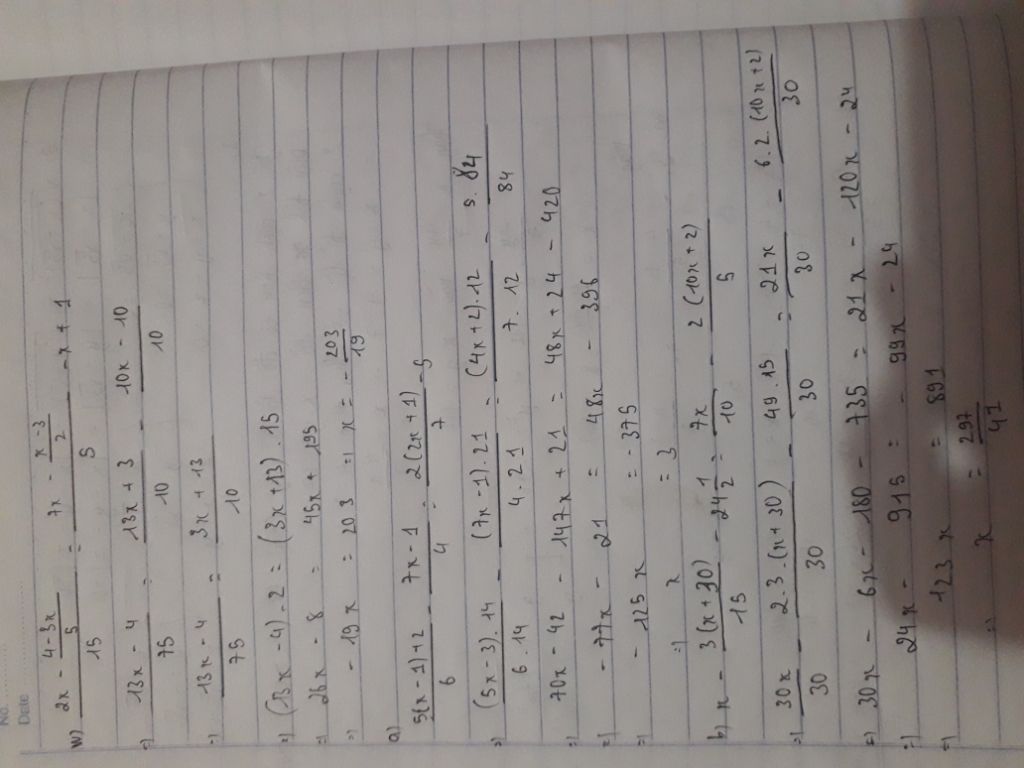 No.
Date
m) (2x - (4-3x)/5)/15 = (7x - (x-3)/2)/5 - x + 1
=) (13x - 4)/75 = (13x + 3)/10 - (10x - 10)/10
=) (13x - 4)/75 = (3x + 13)/10
=) (13x - 4).2 = (3x + 13).15
=) 26x - 8 = 45x + 195
=) - 19x = 203 =) x = - 203/19
a) (5(x - 1) + 2)/6 - (7x - 1)/4 = (2(2x + 1))/7 - 5
=) ((5x - 3).14)/(6.14) - ((7x - 1).21)/(4.21) = ((4x + 2).12)/(7.12) - (5.84)/84
=) 70x - 42 - 147x + 21 = 48x + 24 - 420
=) - 77x - 21 = 48x - 396
=) - 125x = - 375
=) x = 3
b) x - (3(x + 30))/15 - 24 1/2 = 7x/10 - (2(10x + 2))/5
=) 30x/30 - (2.3.(x + 30))/30 - (49.15)/30 = 21x/30 - (6.2.(10x + 2))/30
=) 30x - 6x - 180 - 735 = 21x - 120x - 24
=) 24x - 915 = - 99x - 24
=) 123x = 891
=) x = 297/41